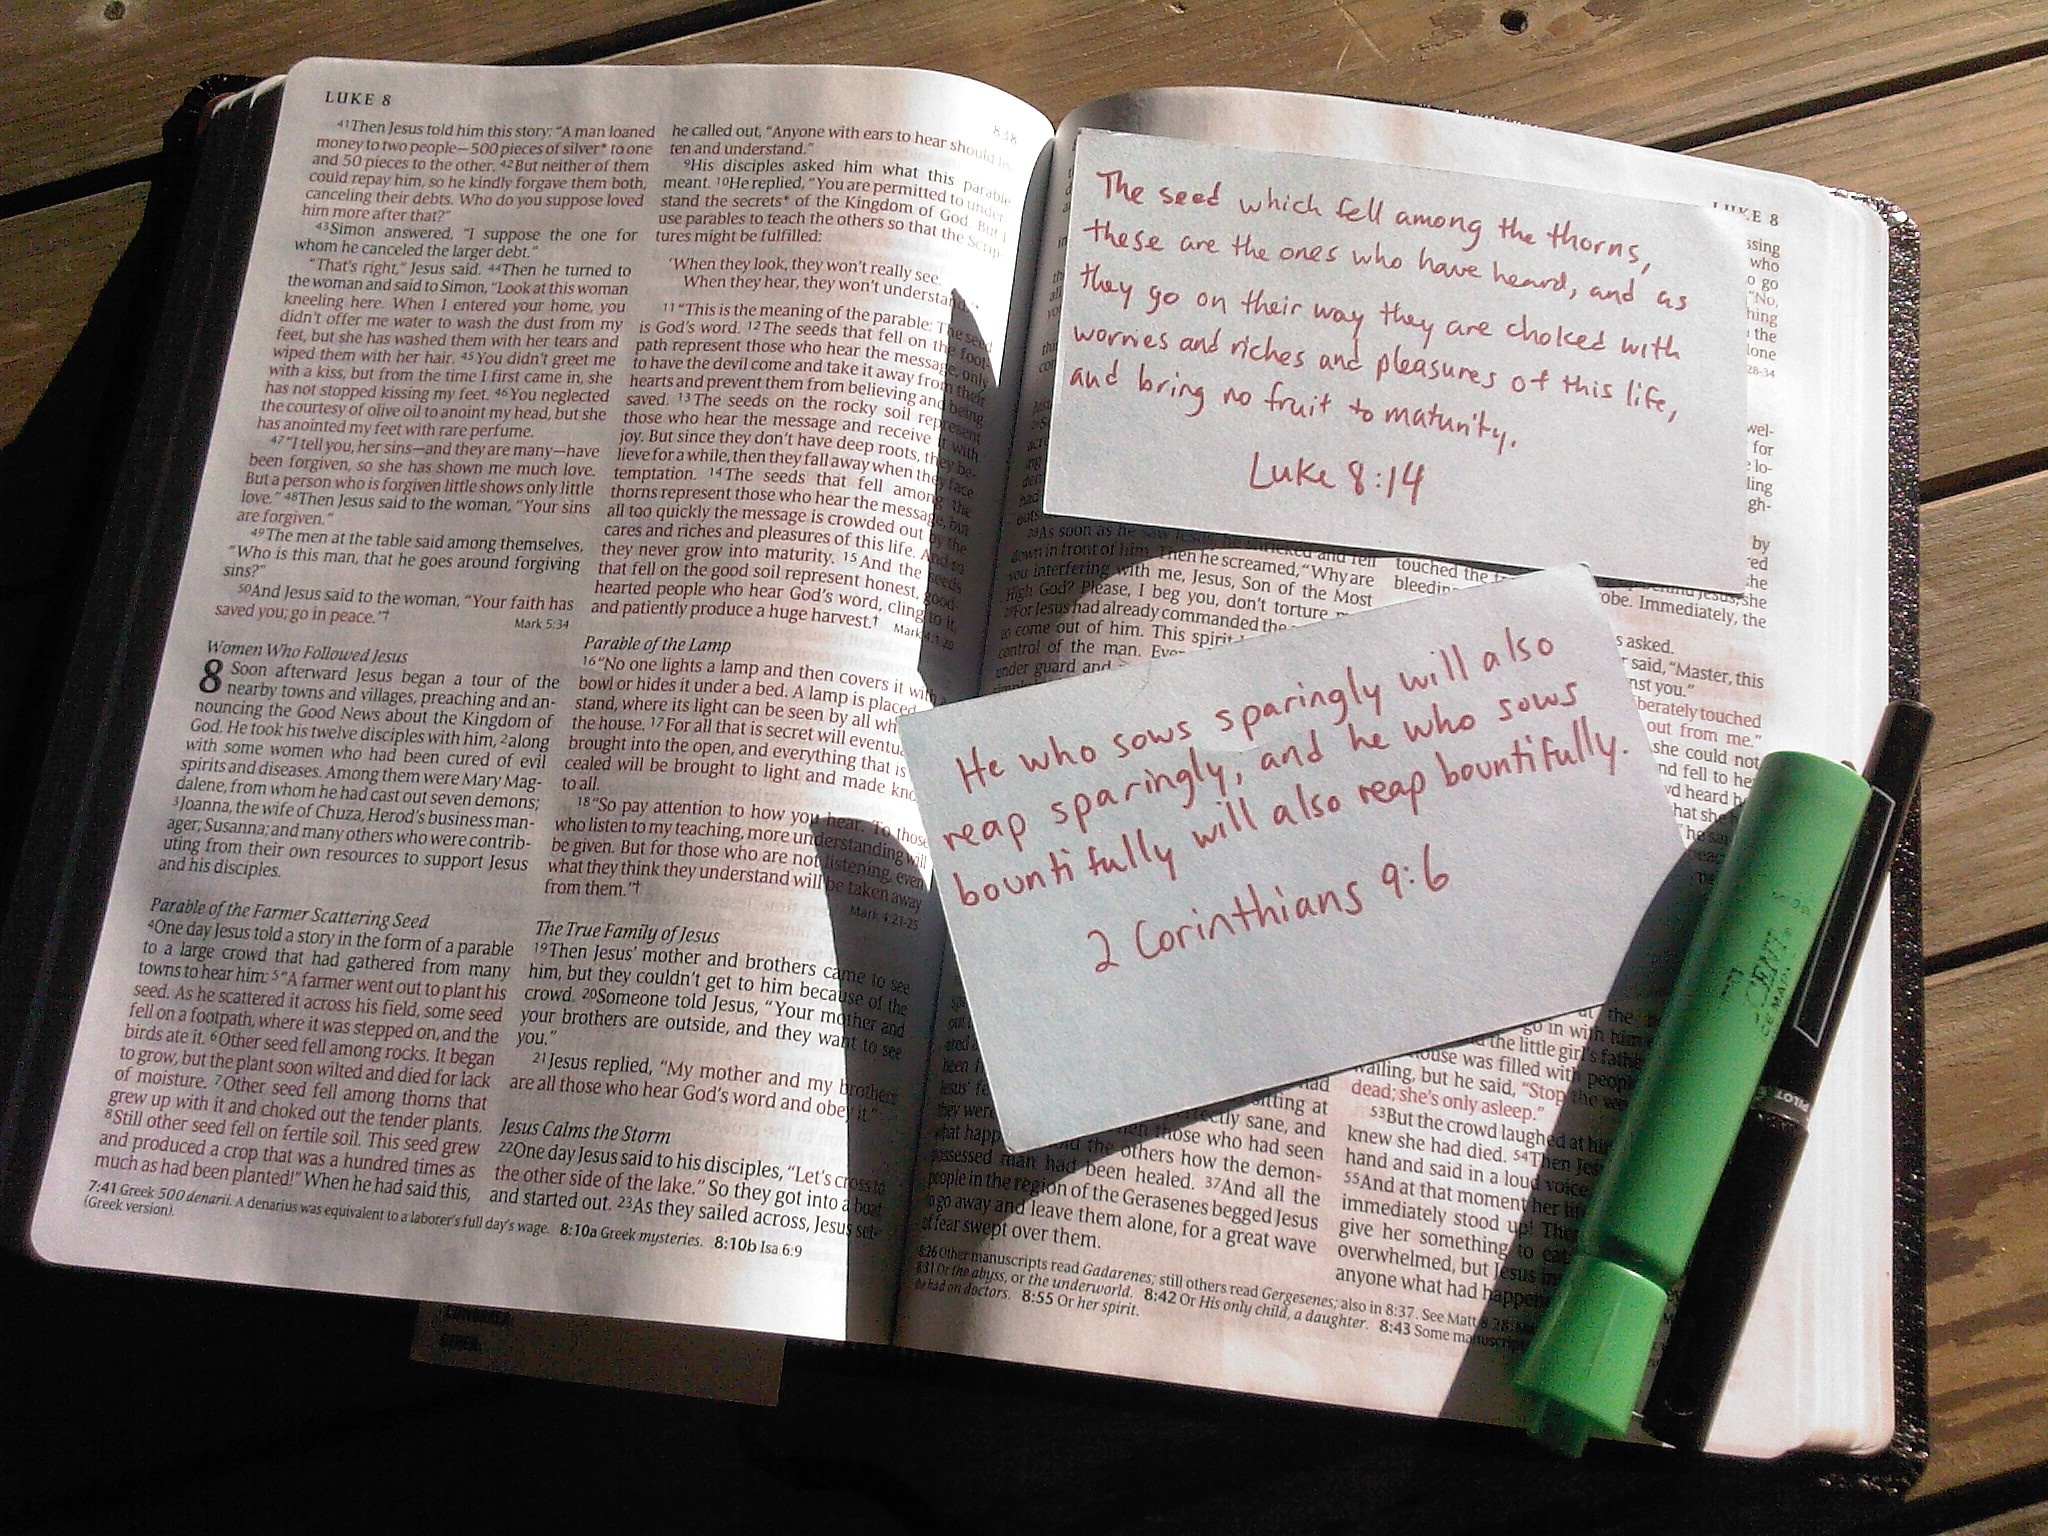 LUKE 8
838
41Then Jesus told him this story: “A man loaned
money to two people—500 pieces of silver* to one
and 50 pieces to the other. 42But neither of them
could repay him, so he kindly forgave them both,
canceling their debts. Who do you suppose loved
him more after that?”
43Simon answered, “I suppose the one for
whom he canceled the larger debt.”
“That’s right,” Jesus said. 44Then he turned to
the woman and said to Simon, “Look at this woman
kneeling here. When I entered your home, you
didn’t offer me water to wash the dust from my
feet, but she has washed them with her tears and
wiped them with her hair. 45You didn’t greet me
with a kiss, but from the time I first came in, she
has not stopped kissing my feet. 46You neglected
the courtesy of olive oil to anoint my head, but she
has anointed my feet with rare perfume.
47“I tell you, her sins—and they are many—have
been forgiven, so she has shown me much love.
But a person who is forgiven little shows only little
love.” 48Then Jesus said to the woman, “Your sins
are forgiven.”
49The men at the table said among themselves,
“Who is this man, that he goes around forgiving
sins?”
50And Jesus said to the woman, “Your faith has
saved you; go in peace.”†
Mark 5:34
Women Who Followed Jesus
8 Soon afterward Jesus began a tour of the
nearby towns and villages, preaching and an-
nouncing the Good News about the Kingdom of
God. He took his twelve disciples with him, 2along
with some women who had been cured of evil
spirits and diseases. Among them were Mary Mag-
dalene, from whom he had cast out seven demons;
3Joanna, the wife of Chuza, Herod’s business man-
ager; Susanna; and many others who were contrib-
uting from their own resources to support Jesus
and his disciples.
Parable of the Farmer Scattering Seed
4One day Jesus told a story in the form of a parable
to a large crowd that had gathered from many
towns to hear him: 5“A farmer went out to plant his
seed. As he scattered it across his field, some seed
fell on a footpath, where it was stepped on, and the
birds ate it. 6Other seed fell among rocks. It began
to grow, but the plant soon wilted and died for lack
of moisture. 7Other seed fell among thorns that
grew up with it and choked out the tender plants.
8Still other seed fell on fertile soil. This seed grew
and produced a crop that was a hundred times as
much as had been planted!” When he had said this,
he called out, “Anyone with ears to hear should lis-
ten and understand.”
9His disciples asked him what this parable
meant. 10He replied, “You are permitted to under-
stand the secrets* of the Kingdom of God. But I
use parables to teach the others so that the Scrip-
tures might be fulfilled:
‘When they look, they won’t really see.
When they hear, they won’t understand.’*
11“This is the meaning of the parable: The seed
is God’s word. 12The seeds that fell on the foot-
path represent those who hear the message, only
to have the devil come and take it away from their
hearts and prevent them from believing and being
saved. 13The seeds on the rocky soil represent
those who hear the message and receive it with
joy. But since they don’t have deep roots, they be-
lieve for a while, then they fall away when they face
temptation. 14The seeds that fell among the
thorns represent those who hear the message, but
all too quickly the message is crowded out by the
cares and riches and pleasures of this life. And so
they never grow into maturity. 15And the seeds
that fell on the good soil represent honest, good-
hearted people who hear God’s word, cling to it,
and patiently produce a huge harvest.†
Mark 4:1-20
Parable of the Lamp
16“No one lights a lamp and then covers it with a
bowl or hides it under a bed. A lamp is placed
stand, where its light can be seen by all wh
the house. 17For all that is secret will eventua
brought into the open, and everything that is
cealed will be brought to light and made kno
to all.
18“So pay attention to how you hear. To those
who listen to my teaching, more understanding will
be given. But for those who are not listening, even
what they think they understand will be taken away
from them.”†
Mark 4:21-25
The True Family of Jesus
19Then Jesus’ mother and brothers came to see
him, but they couldn’t get to him because of the
crowd. 20Someone told Jesus, “Your mother and
your brothers are outside, and they want to see
you.”
21Jesus replied, “My mother and my brothers
are all those who hear God’s word and obey it.”
Jesus Calms the Storm
22One day Jesus said to his disciples, “Let’s cross to
the other side of the lake.” So they got into a boat
and started out. 23As they sailed across, Jesus set-
7:41 Greek 500 denarii. A denarius was equivalent to a laborer’s full day’s wage. 8:10a Greek mysteries. 8:10b Isa 6:9
(Greek version).
LUKE 8
The seed which fell among the thorns,
these are the ones who have heard, and as
they go on their way they are choked with
worries and riches and pleasures of this life,
and bring no fruit to maturity.
Luke 8:14
28As soon as he saw Jesus, he shrieked and fell
down in front of him. Then he screamed, “Why are
you interfering with me, Jesus, Son of the Most
High God? Please, I beg you, don’t torture
29For Jesus had already commanded the
to come out of him. This spirit
control of the man. Eve
under guard and
He who sows sparingly will also
reap sparingly, and he who sows
bountifully will also reap bountifully.
2 Corinthians 9:6
sitting at
perfectly sane, and
those who had seen
the others how the demon-
possessed man had been healed. 37And all the
people in the region of the Gerasenes begged Jesus
to go away and leave them alone, for a great wave
of fear swept over them.
touched the
bleeding
robe. Immediately, the
asked.
said, “Master, this
you.”
berately touched
out from me.”
she could not
and fell to he
heard
go in with him
the little girl’s
house was filled with people
wailing, but he said, “Stop the
dead; she’s only asleep.”
53But the crowd laughed at
knew she had died. 54Then
hand and said in a loud voice
55And at that moment her
immediately stood up!
give her something to eat
overwhelmed, but Jesus
anyone what had happen
8:26 Other manuscripts read Gadarenes; still others read Gergesenes; also in 8:37. See Matt 8:28.
8:31 Or the abyss, or the underworld. 8:42 Or His only child, a daughter. 8:43 Some manuscrip
he had on doctors. 8:55 Or her spirit.
PILOT